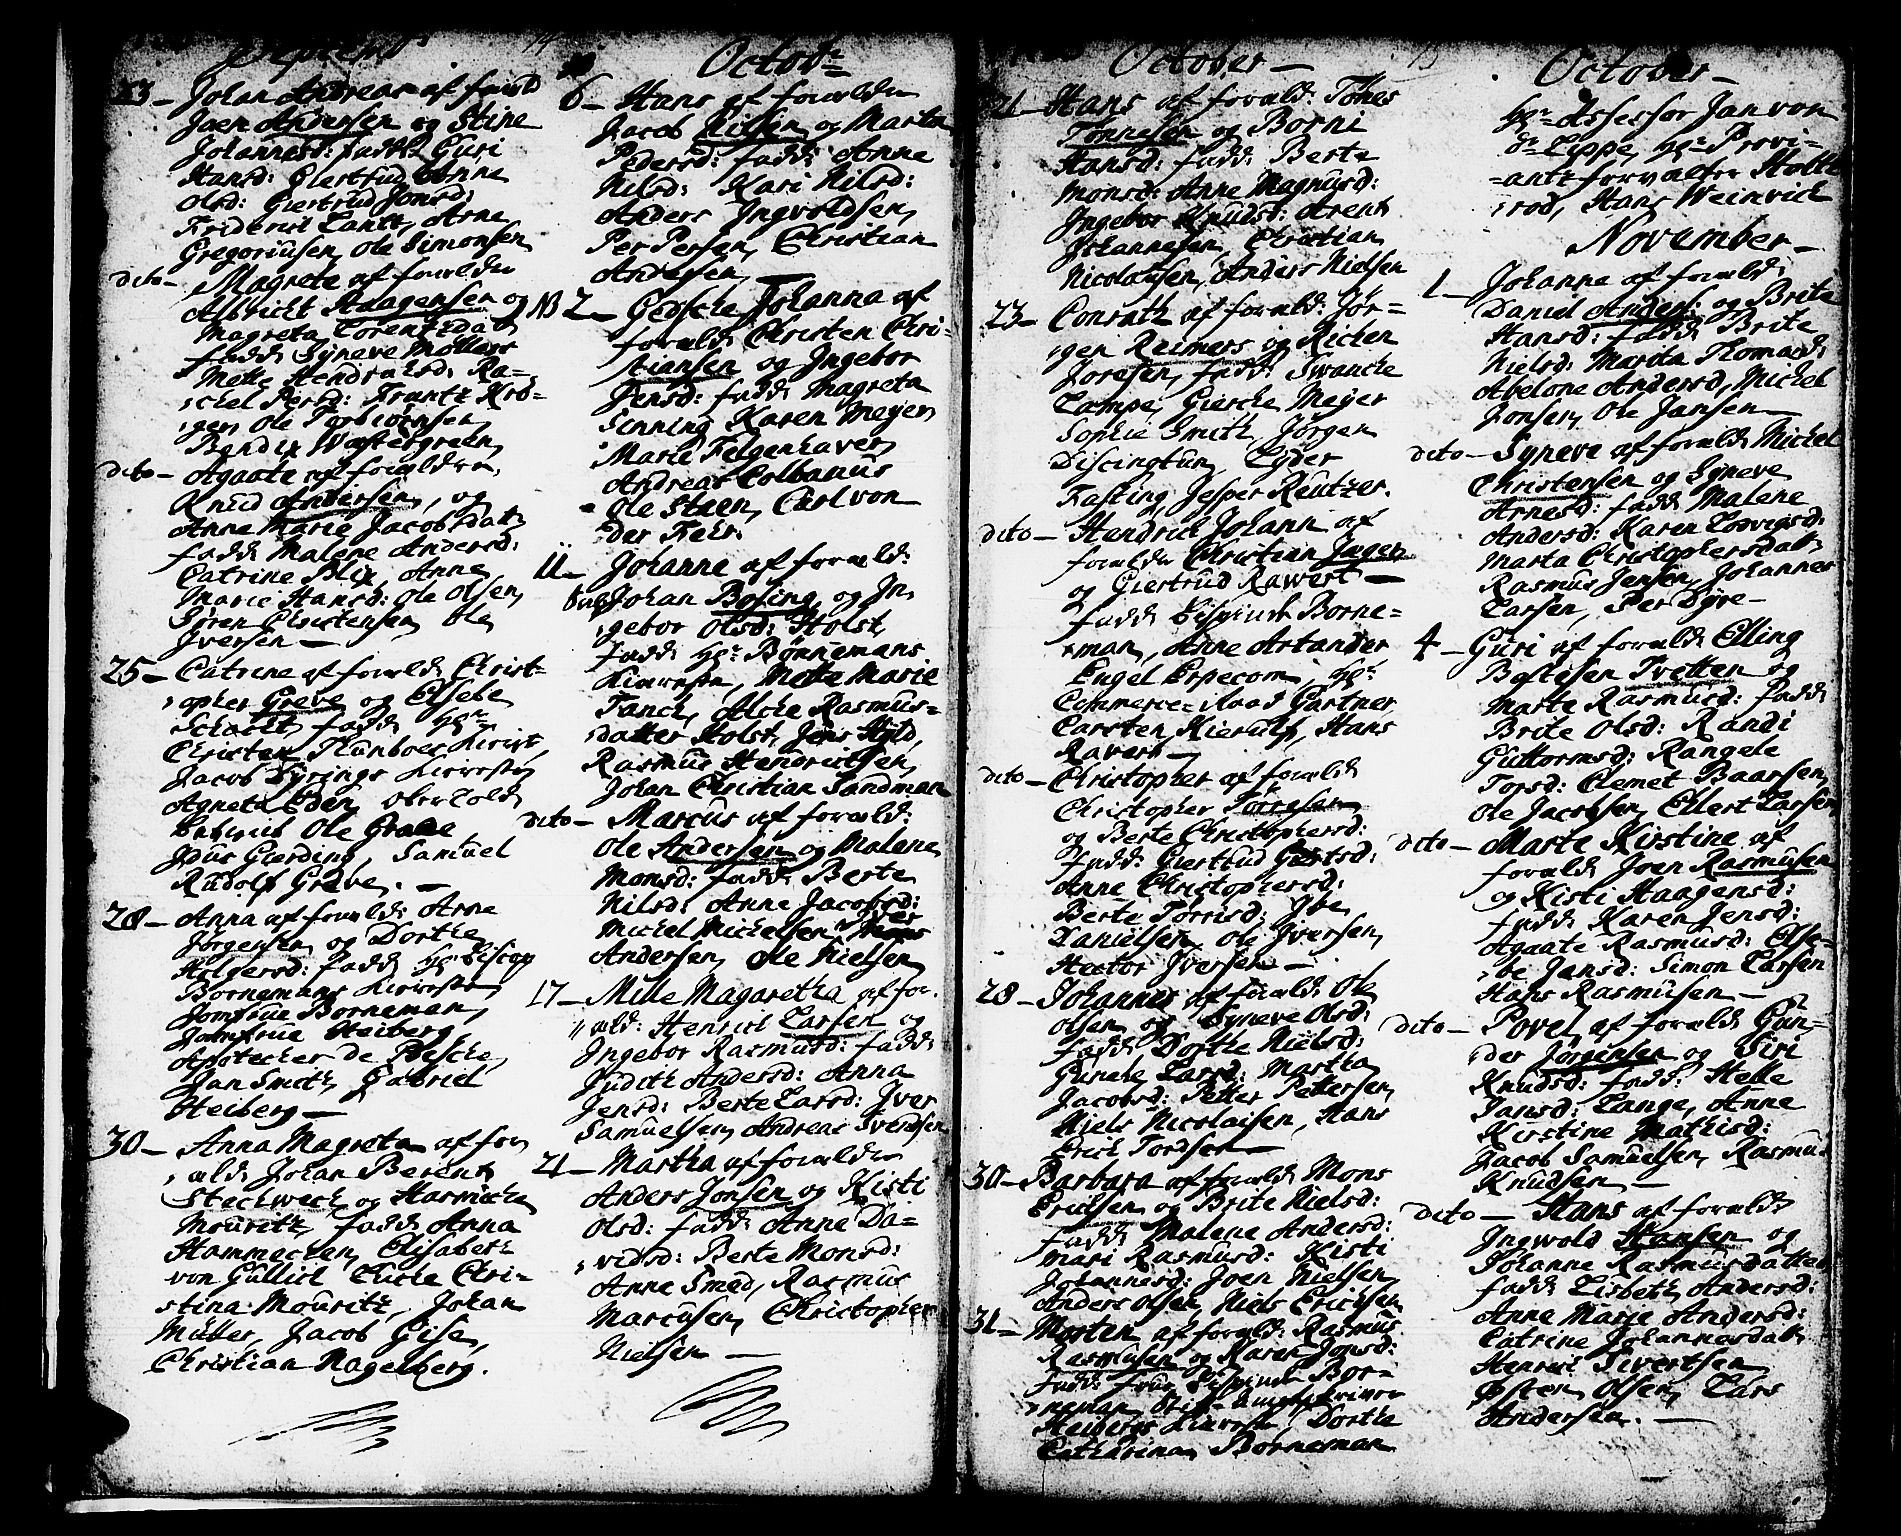 14
Septembr
23 – Johan Andreas af foræld
Joen Andersen og Stine
Johannesd: fadd: Guri
Hansd: Giertrud Anne
Olsd: Giertrud Jonsd:
Friderich Lantz, Arne
Gregoriusen, Ole Simonsen
dito – Magrete af forældre
Albricht Haagensen og
Magreta Lorentzdat
fadd: Syneve Møllers
Mette Hendrichsd: Ra=
:chel Persd: Frantz Krö=
:ger, Ole Torbiørnsen
Bendix Wæstergreen
dito – Agaate af forældre
Knud Andersen, og
Anne Marie Jacobsdatr
fadd: Malene Andersd:
Catrine Blix, Anne
Marie Hansd: Ole Olsen,
Søren Christensen, Ole
Iversen –
25 – Catrine af foræld: Christ=
:opher Greve og Elsebe
Schacht, fadd: Hr
Christen
Jacob Dyrings Kiereste
Agneta Eden,
Ole Grave
Idus Gierding, Samuel
Rudolf Greve. –
28 – Anna af foræld: Arne
Jørgensen og Dorthe
Holgersd: fadd: Hr Biscop
Bornemans Kiereste
Jomfrue Borneman,
Jomfrue Heiberg,
Apotecker de Besche,
Jan Smith, Gabriel
Heiberg –
30 – Anna Magreta af for
:æld: Johan Berent
Steckweck og Harmicke
Mouritz, fadd: Anna
Hammecken, Elisabeth
von Gullich Chri=
stina Mouritz, Johan
Müller, Jacob Gise,
Christian Nagelberg.
Octobr
6 – Hans af forældre
Jacob og Marta
Pedersd: fadd: Anne
Nilsd: Kari Nilsd:
Anders Ingvoldsen,
Per Persen, Christian
Andersen
NB 2 – Gedsche Johanna af
foræld: Christen Chri=
stiansen og Ingebor
Jensd: fadd: Magreta
Sinning Karen Meyer,
Marie Felgenhaver,
Andreas Colbanus
Ole Staen, Carl von
Der Fehr.
11 – Johanne af foræld:
Johan Bøsing, og In,
:gebor Olsd: Holst,
fadd: Hr Bornemans
Kiereste, Mette Marie
Tanch, Alche Rasmus=
:datter Holst, Jens Hyld,
Rasmus Hendrichsen,
Johan Christian Sandman
dito – Marcus af foræld:
Ole Andersen og Malene
Monsd: fadd: Berte
Nilsd: Anne Jacobsd:
Michel Michelsen, Iver
Andersen, Ole Nielsen
17 – Mille Magaretha af for.
:æld: Henrich Larsen og
Ingebor Rasmusd: fadd:
Judith Andersd: Anna
Jensd: Berte Larsd: Iver
Samuelsen, Andreas Svendsen
21 – Martha af forældre
Anders Jonsen og Kisti
Olsd: fadd: Anne Da=
:vidsd: Berte Monsd:
Anne Smed, Rasmus
Marcusen, Christopher
Nielsen –
15
October –
21 – Hans af foræld: Tönes
Tönnesen og Borni
Hansd: fadd: Berte
Monsd: Anne Magnusd:
Ingebor Knudsd: Arent
Johannesen, Christian
Nicolausen, Anders Nielsen
23 – Conrath af foræld: Jør=
:gen Reimers og Kicken
Joresen, fadd: Swancke
Lampe, Giesche Meyer
Sophie Smith, Jørgen
Discington, Eyder
Fasting, Jesper Reutzer.
dito – Hendrich Johann af
forældre Christian Jager
og Giertrud Rawert –
fadd: Bispinde Borne=
:man, Anne Artander
Engel Erpecom, Hr
Commerce=Raad Gartner
Carsten Kierulf, Hans
Rawert –
dito – Christopher af foræld
Christopher Torresen
og Berte Christophersd:
fadd: Giertrud Giertsd:
Anne Christophersd:
Berte Torrisd: Joe
Danielsen, Ole Iversen,
Hector Iversen –
28 – Johannes af foræld: Ole
Olsen og Syneve Olsd:
fadd: Dorthe Nielsd:
Gunele Larsd: Martha
Jacobsd: Petter Pettersen,
Niels Nicolaisen, Hans
Erich Tordsen –
30 – Barbara af foræld: Mons
Ericksen og Brite Nielsd:
fadd: Malene Andersd:
Mari Rasmusd: Kisti
Johannesd: Joen Nielsen,
Anders Olsen, Niels Ericksen
31 – Morten af foræld: Rasmus
Rasmusen og Karen Jonsd:
fadd: frue Bispinde Bor=
:neman, Stift=Amptskriver
Heibergs Kiereste, Dorthe
Catharina Borneman
October –
Hr Assessor Jan von
Dr Lippe, Hr Provi=
=antz forvalter Holte
:rod, Hans Weinrich
November –
1 – Johanne af foræld:
Daniel Anders: og Brite
Hansd: fadd: Brite
Nielsd: Marta Thomasd:
Abelone Andersd, Michel
Jonsen, Ole Jansen –
dito – Syneve af foræld: Michel
Christensen og Syneve
Arnesd: fadd: Malene
Andersd: Karen Lovigsd:
Marta Christophersdatr
Rasmus Jensen, Johannes
Larsen, Per Dyre –
4 – Guri af foræld: Elling
Bottesen Tvetten og
Marte Rasmusd: fadd:
Brite Olsd: Randi
Guttormsd: Rangele
Torsd: Clemet Baarsen,
Ole Jacobsen, Ellert Larsen
dito – Marte Kirstine af
foræld: Joen Rasmusen
og Kisti Haagensd:
fadd: Karen Jensd:
Agaate Rasmusd: Else=
:be Jansd: Simon Larsen
Hans Rasmusen –
dito – Povel af foræld: Gun=
:der Jørgensen og Siri
Knudsd: fadd: Helle
Jansd: Lange, Anne
Kirstine Mathisd:
Jacob Samuelsen, Rasmus
Knudsen –
dito – Hans af foræld:
Ingwold Hansen og
Johanne Rasmusdatter
fadd: Lisbeth Andersd:
Anne Marie Andersd:
Catrine Johannesdatr
Henrich Sivertsen
Østen Olsen, Lars
Andersen. –